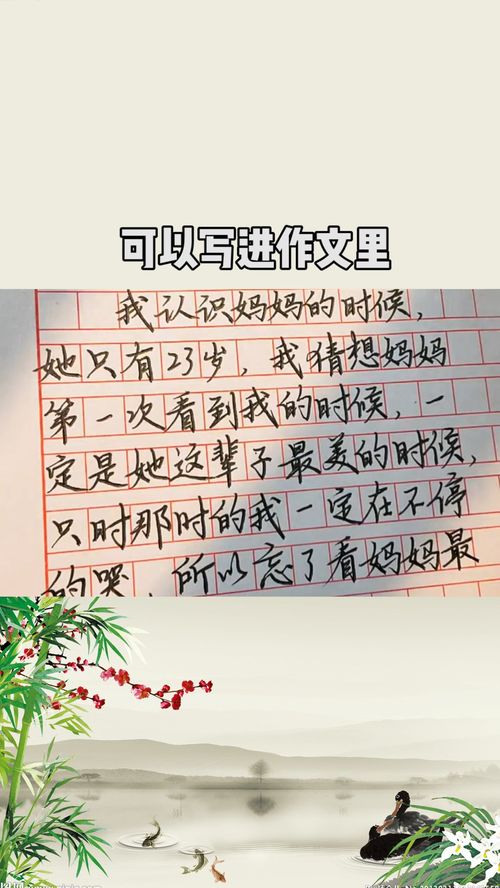 可以写进作文里
我认识妈妈的时候，
她只有23岁，我猜想妈妈
第一次看到我的时候，一
定是她这辈子最美的时候，
只时那时的我一定在不停
的哭，所以忘了看妈妈最